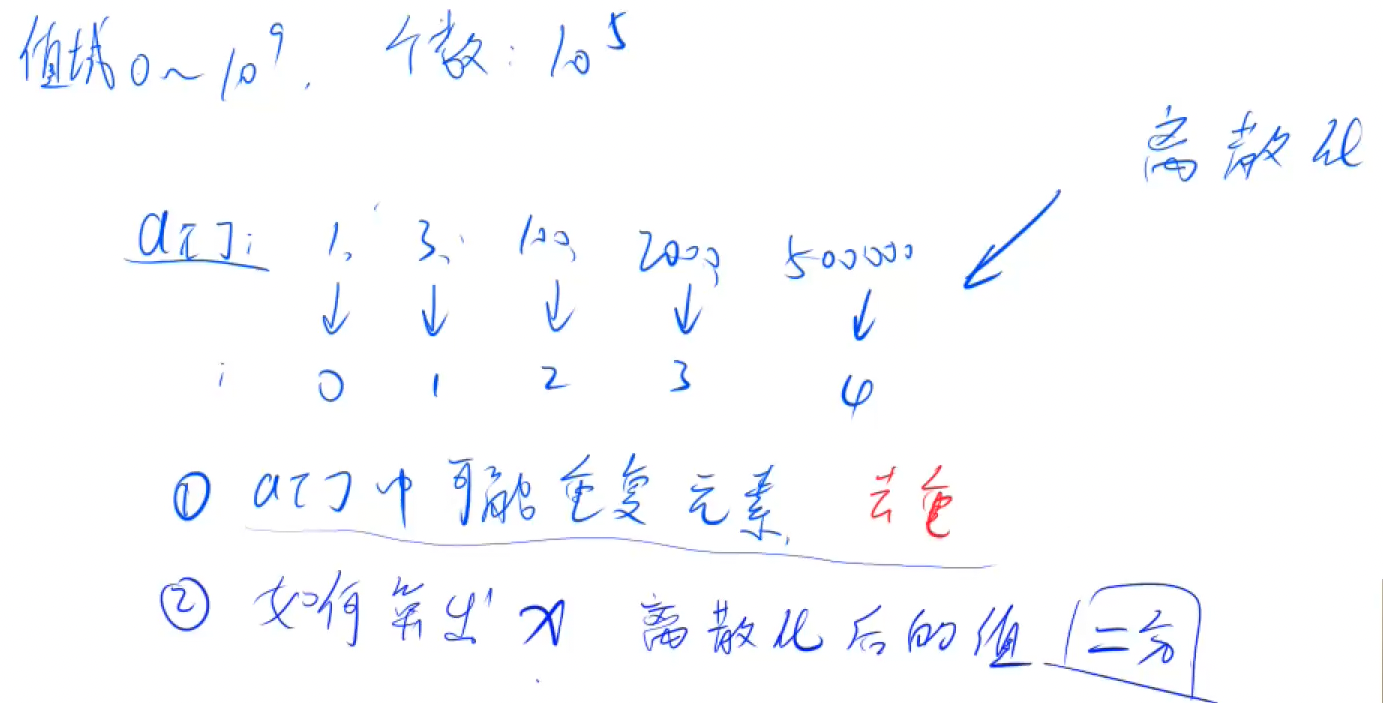 值域0~10^9. 个数:10^5
离散化
a[]: 1, 3, 100, 2000, 500000
↓ ↓ ↓ ↓ ↓
i 0 1 2 3 4
① a[]中可能重复元素. 去重
② 如何算出x 离散化后的值 二分